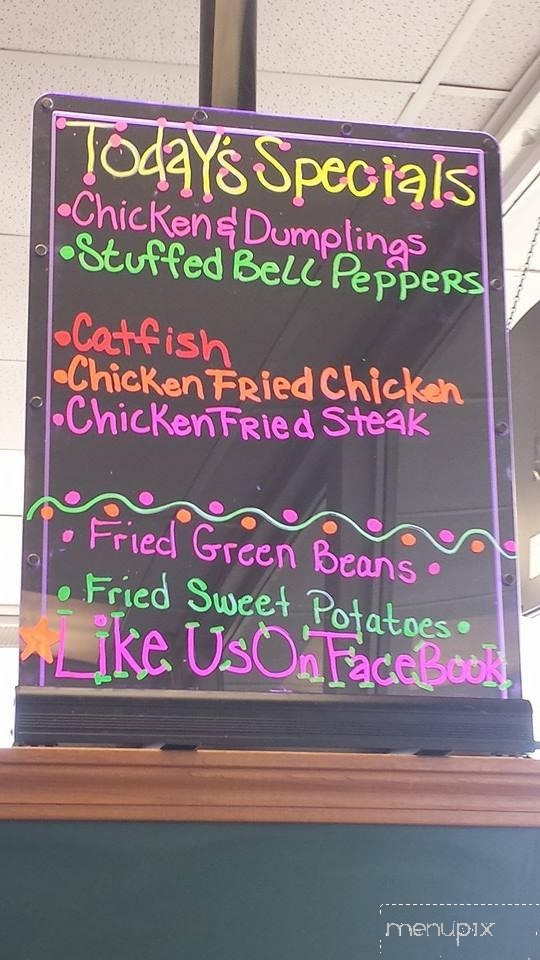 Today's Specials
• Chicken & Dumplings
• Stuffed Bell Peppers
• Catfish
• Chicken Fried Chicken
• Chicken Fried Steak
• Fried Green Beans •
• Fried Sweet Potatoes •
Like Us On FaceBook
menupix